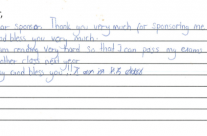 sponsor, Thank you very much for sponsoring me.
bless you very much.
am reading very hard so that I can pass my exams.
other class next year
God bless you!! I am in